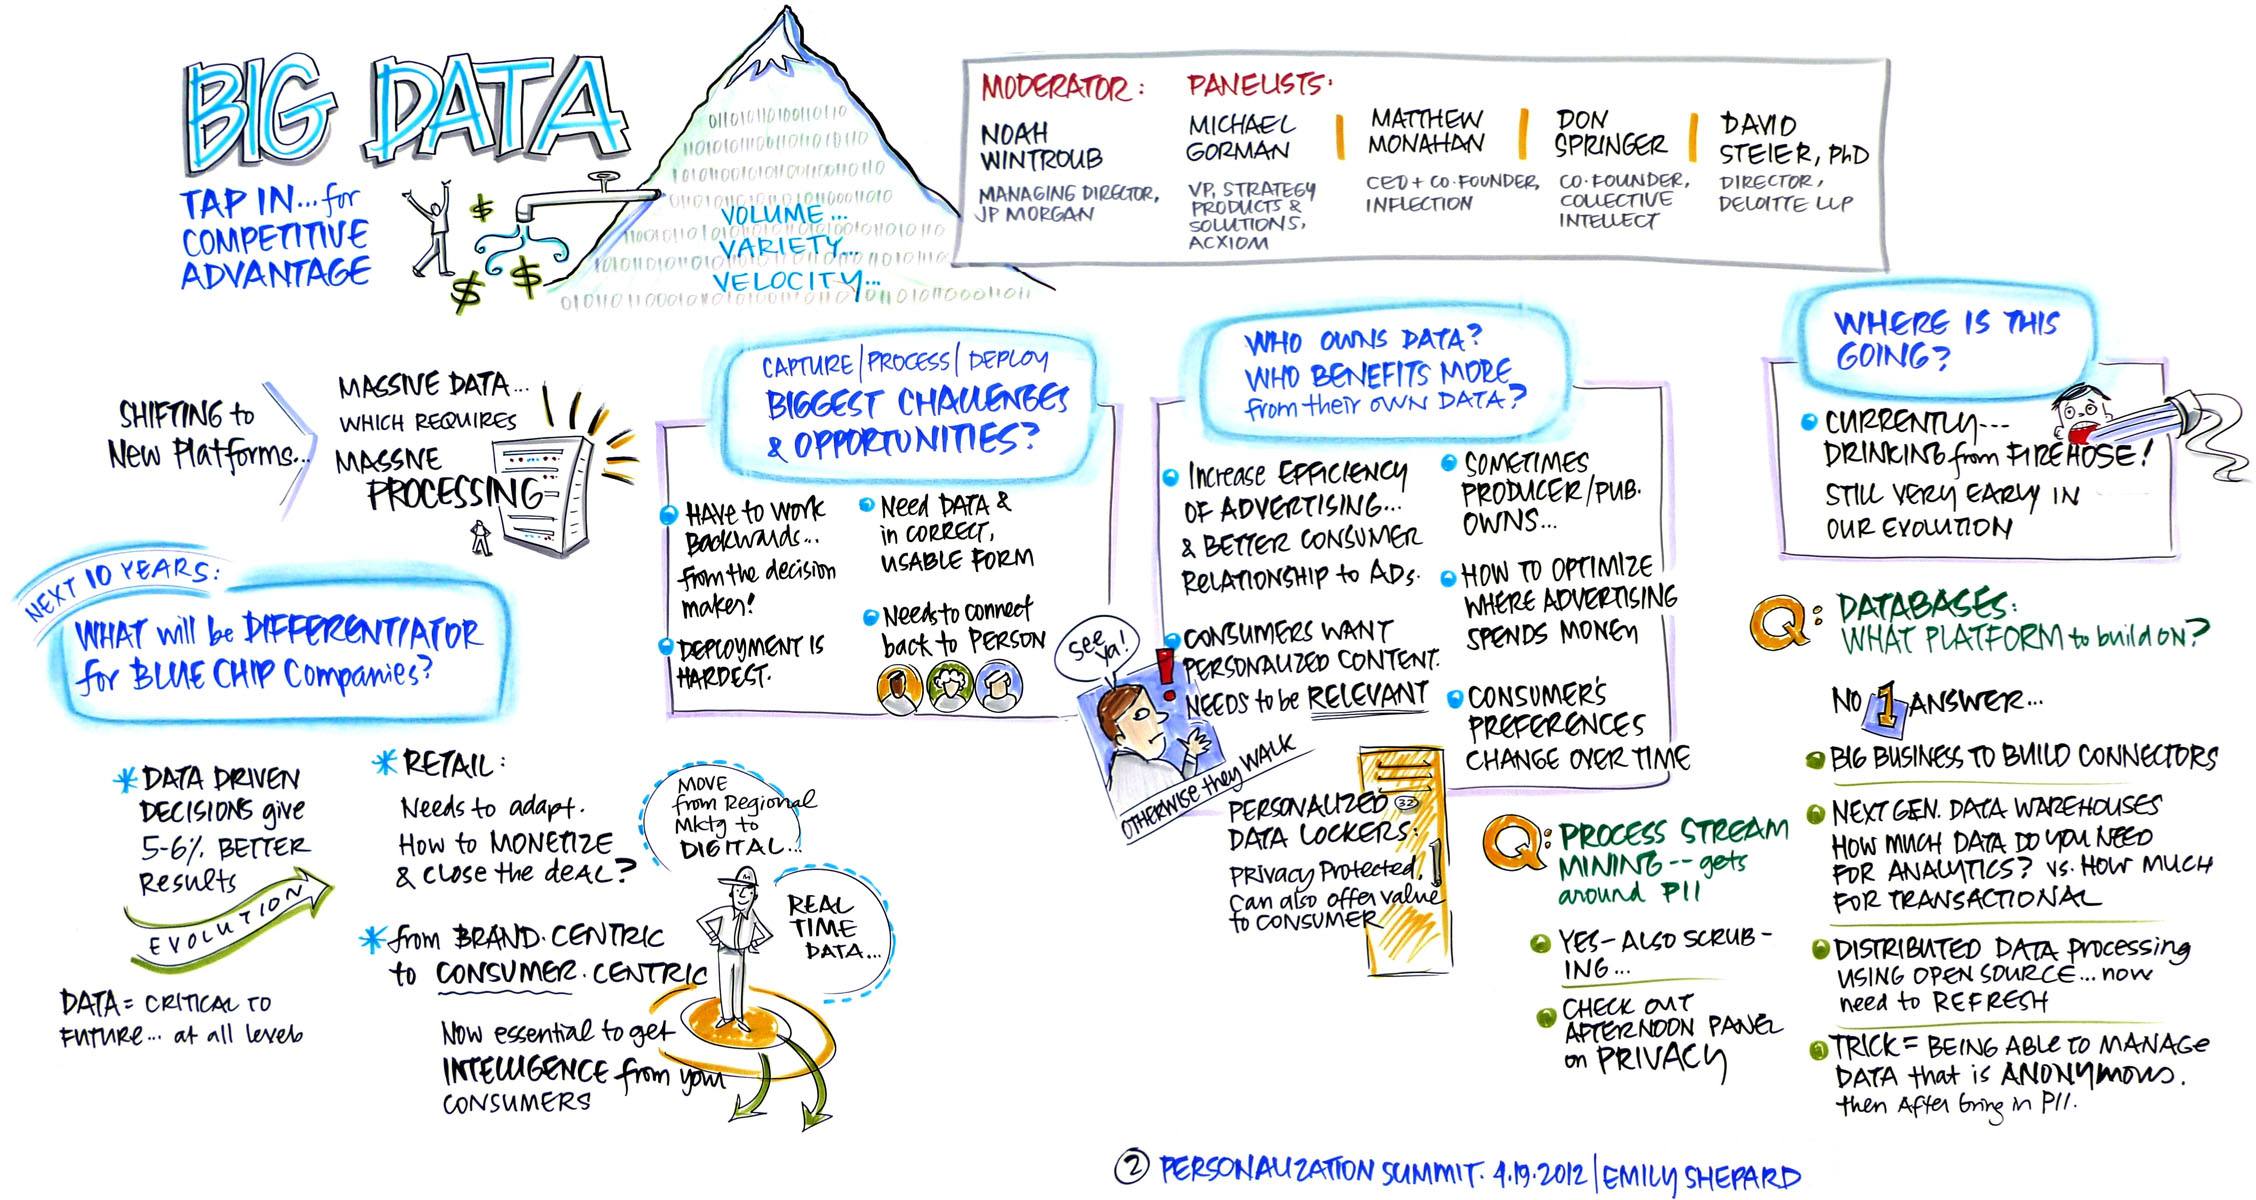 BIG DATA
TAP IN... for
COMPETITIVE
ADVANTAGE
$
$
$
VOLUME...
VARIETY...
VELOCITY...
MODERATOR:
NOAH
WINTROUB
MANAGING DIRECTOR,
JP MORGAN
PANELISTS:
MICHAEL
GORMAN
VP, STRATEGY
PRODUCTS &
SOLUTIONS,
ACXIOM
MATTHEW
MONAHAN
CEO + CO-FOUNDER,
INFLECTION
DON
SPRINGER
CO-FOUNDER,
COLLECTIVE
INTELLECT
DAVID
STEIER, PhD
DIRECTOR,
DELOITTE LLP
SHIFTING to
New Platforms...
MASSIVE DATA...
WHICH REQUIRES
MASSIVE
PROCESSING
NEXT 10 YEARS:
WHAT will be DIFFERENTIATOR
for BLUE CHIP Companies?
* DATA DRIVEN
DECISIONS give
5-6% BETTER
Results
EVOLUTION
DATA = CRITICAL TO
FUTURE... at all levels
* RETAIL:
Needs to adapt.
How to MONETIZE
& close the deal?
* from BRAND-CENTRIC
to CONSUMER-CENTRIC
Now essential to get
INTELLIGENCE from your
CONSUMERS
MOVE
from Regional
Mktg to
DIGITAL...
REAL
TIME
DATA...
CAPTURE | PROCESS | DEPLOY
BIGGEST CHALLENGES
& OPPORTUNITIES?
HAVE to WORK
Backwards...
from the decision
maker!
DEPLOYMENT IS
HARDEST.
Need DATA &
in CORRECT,
USABLE FORM
Needs to connect
back to PERSON
WHO OWNS DATA?
WHO BENEFITS MORE
from their OWN DATA?
Increase EFFICIENCY
OF ADVERTISING...
& BETTER CONSUMER
RELATIONSHIP to ADs.
CONSUMERS WANT
PERSONALIZED CONTENT.
NEEDS to be RELEVANT
See ya!
!
OTHERWISE they WALK
SOMETIMES
PRODUCER/PUB.
OWNS...
HOW TO OPTIMIZE
WHERE ADVERTISING
SPENDS MONEY
CONSUMER'S
PREFERENCES
CHANGE OVER TIME
PERSONALIZED
DATA LOCKERS:
Privacy Protected,
can also offer value
to CONSUMER
32
Q: PROCESS STREAM
MINING -- gets
around PII
YES- ALSO SCRUB-
ING...
CHECK OUT
AFTERNOON PANEL
on PRIVACY
WHERE IS THIS
GOING?
CURRENTLY---
DRINKING from FIREHOSE!
STILL VERY EARLY IN
OUR EVOLUTION
Q: DATABASES:
WHAT PLATFORM to build on?
NO 1 ANSWER...
BIG BUSINESS TO BUILD CONNECTORS
NEXT GEN. DATA WAREHOUSES
HOW MUCH DATA DO YOU NEED
FOR ANALYTICS? vs. HOW MUCH
FOR TRANSACTIONAL
DISTRIBUTED DATA processing
USING OPEN SOURCE... now
need to REFRESH
TRICK = BEING ABLE TO MANAGE
DATA that is ANONYMOUS.
then After bring in PII.
2 PERSONALIZATION SUMMIT. 4.19.2012 | EMILY SHEPARD